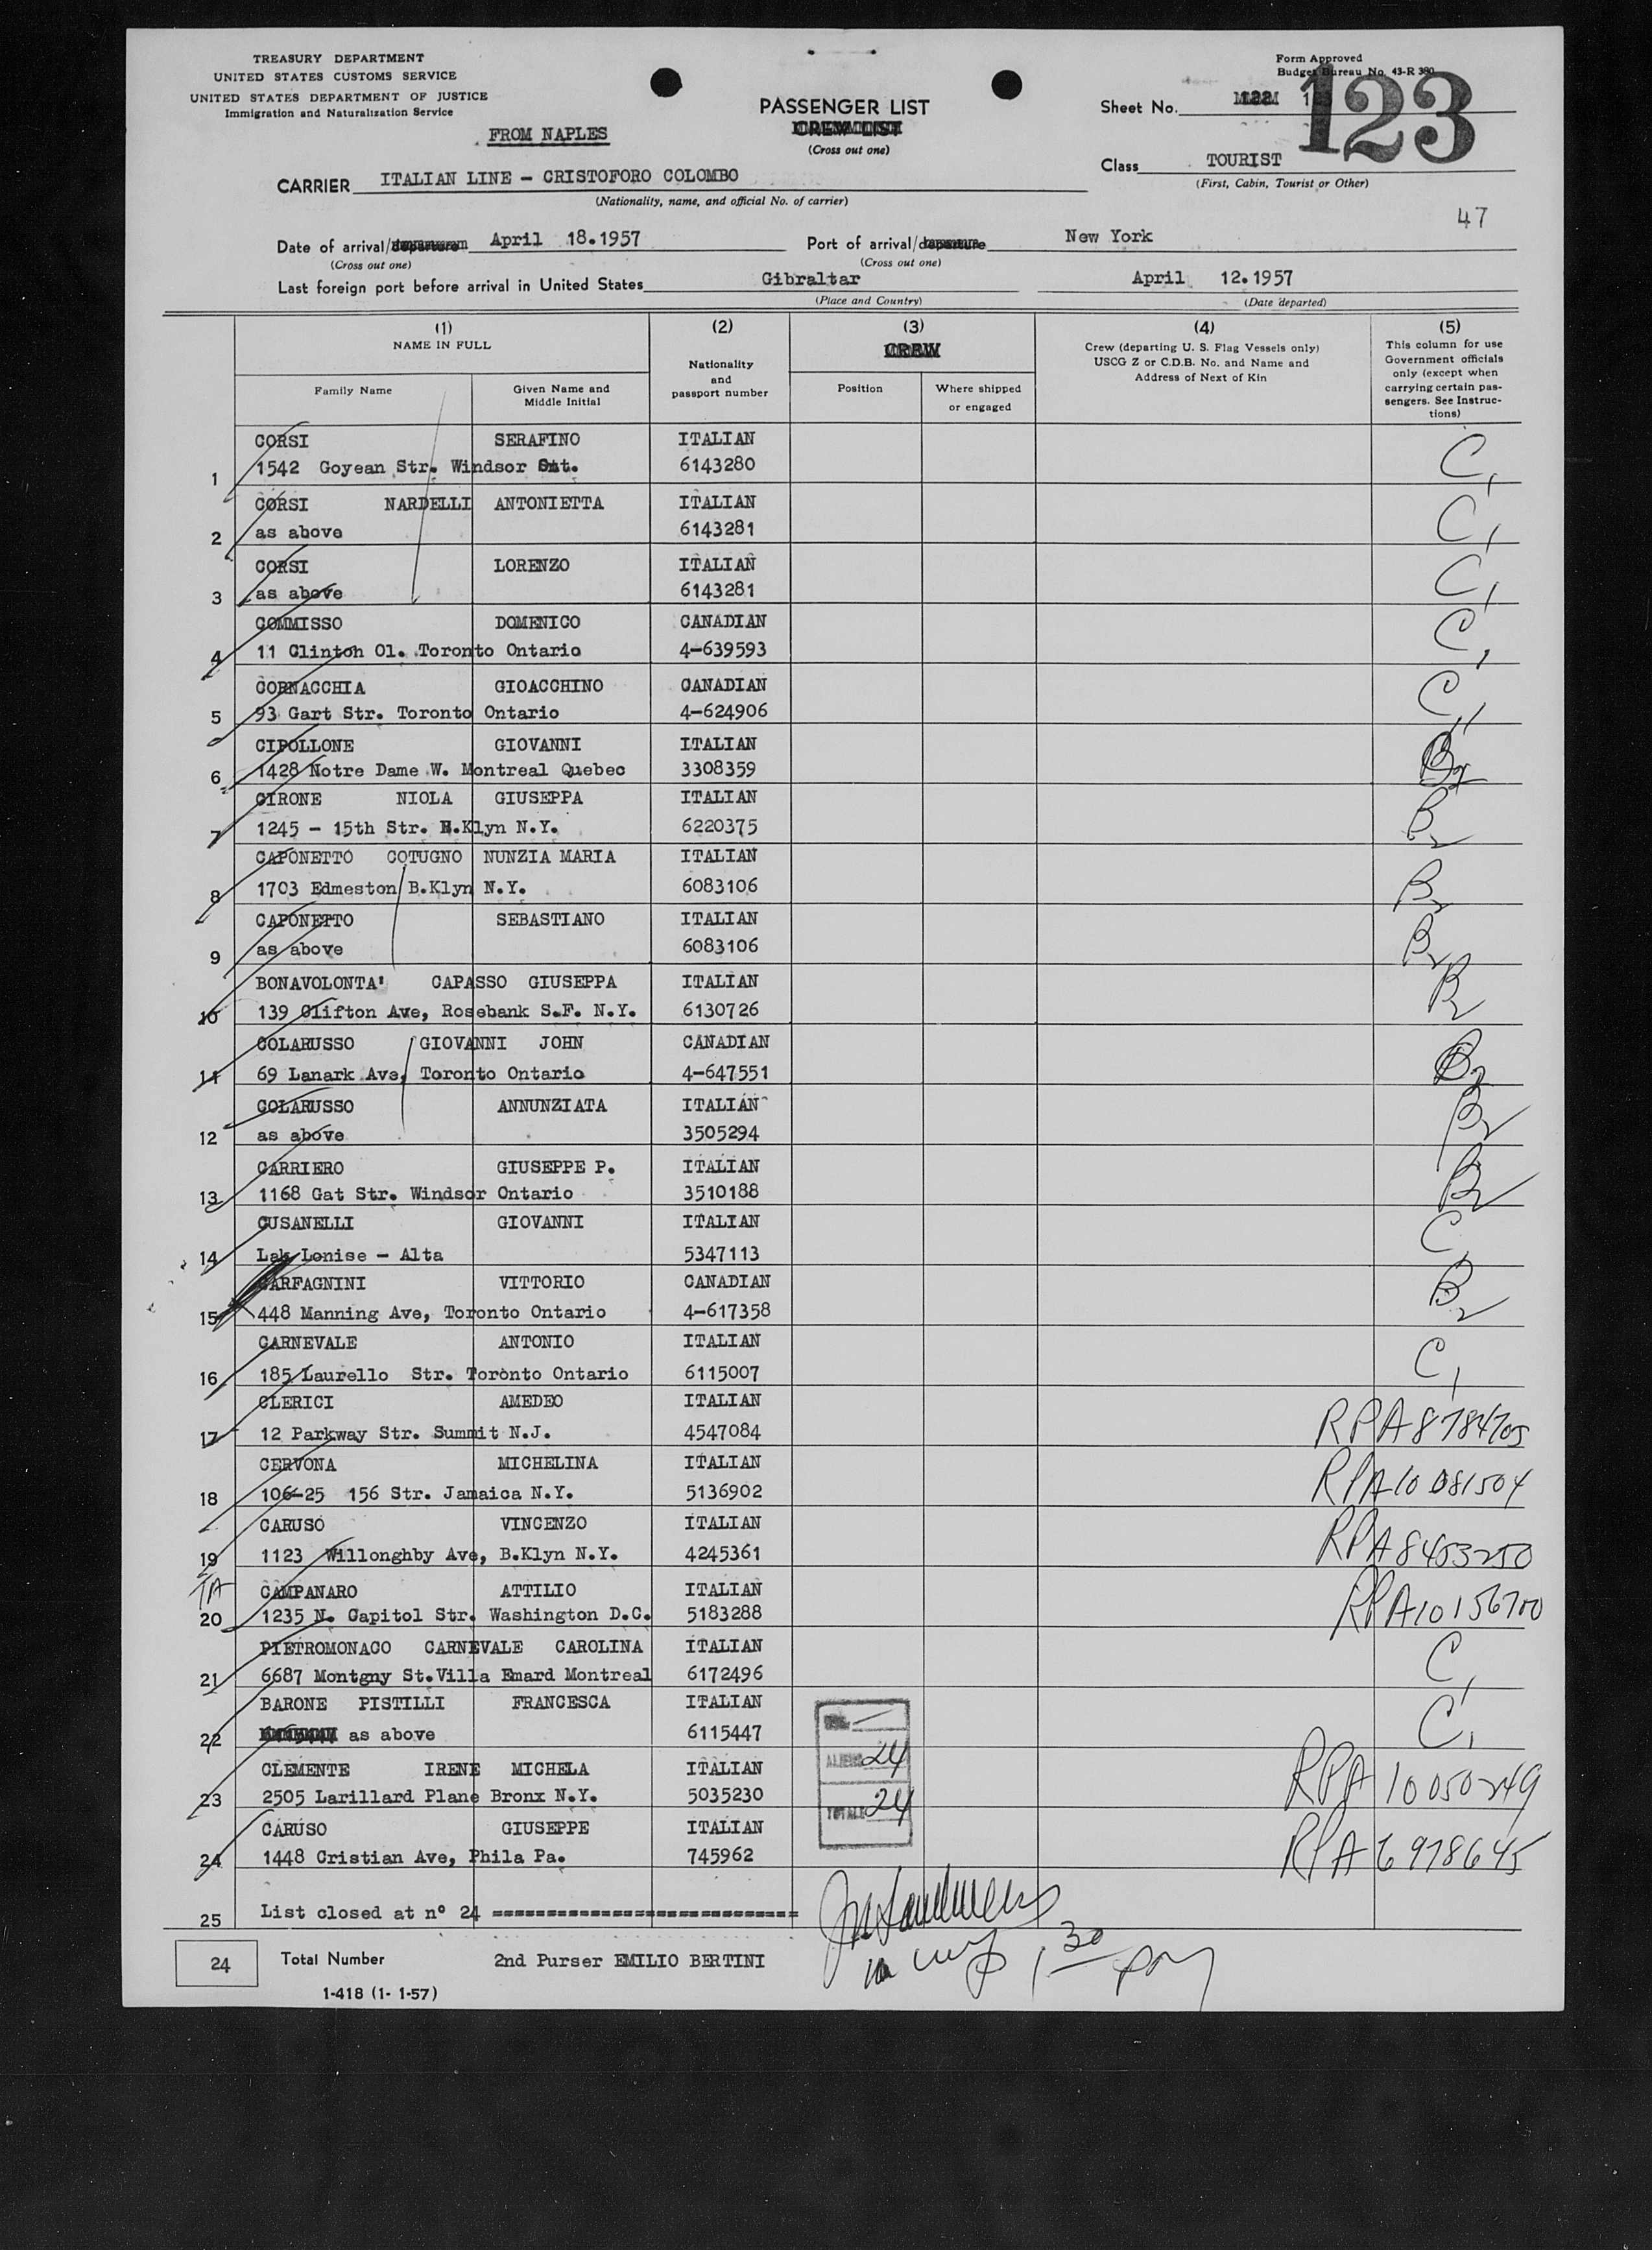 TREASURY DEPARTMENT
UNITED STATES CUSTOMS SERVICE
UNITED STATES DEPARTMENT OF JUSTICE
Immigration and Naturalization Service
FROM NAPLES
PASSENGER LIST
CREW LIST
(Cross out one)
Form Approved
Budget Bureau No. 43-R 380
Sheet No.
123
Class TOURIST
(First, Cabin, Tourist or Other)
CARRIER ITALIAN LINE - CRISTOFORO COLOMBO
(Nationality, name, and official No. of carrier)
47
Date of arrival/departure April 18.1957
(Cross out one)
Port of arrival/departure New York
(Cross out one)
Last foreign port before arrival in United States Gibraltar April 12.1957
(Place and Country) (Date departed)
(1)
NAME IN FULL
Family Name
Given Name and Middle Initial
(2)
Nationality and passport number
(3)
CREW
Position
Where shipped or engaged
(4)
Crew (departing U. S. Flag Vessels only)
USCG Z or C.D.B. No. and Name and
Address of Next of Kin
(5)
This column for use
Government officials
only (except when
carrying certain pas-
sengers. See Instruc-
tions)
CORSI SERAFINO ITALIAN
1 1542 Goyean Str. Windsor Ont. 6143280 C1
CORSI NARDELLI ANTONIETTA ITALIAN
2 as above 6143281 C1
CORSI LORENZO ITALIAN
3 as above 6143281 C1
COMMISSO DOMENICO CANADIAN
4 11 Clinton Ol. Toronto Ontario 4-639593 C1
CORNACCHIA GIOACCHINO CANADIAN
5 93 Gart Str. Toronto Ontario 4-624906 C1
CIPOLLONE GIOVANNI ITALIAN
6 1428 Notre Dame W. Montreal Quebec 3308359 B2
CIRONE NIOLA GIUSEPPA ITALIAN
7 1245 - 15th Str. B.Klyn N.Y. 6220375 B2
CAPONETTO COTUGNO NUNZIA MARIA ITALIAN
8 1703 Edmeston B.Klyn N.Y. 6083106 B2
CAPONETTO SEBASTIANO ITALIAN
9 as above 6083106 B2
BONAVOLONTA' CAPASSO GIUSEPPA ITALIAN
10 139 Clifton Ave, Rosebank S.F. N.Y. 6130726 B2
COLARUSSO GIOVANNI JOHN CANADIAN
11 69 Lanark Ave, Toronto Ontario 4-647551 B2
COLARUSSO ANNUNZIATA ITALIAN
12 as above 3505294 B2
CARRIERO GIUSEPPE P. ITALIAN
13 1168 Gat Str. Windsor Ontario 3510188 B2
CUSANELLI GIOVANNI ITALIAN
14 Lak Lonise - Alta 5347113 C1
CARFAGNINI VITTORIO CANADIAN
15 448 Manning Ave, Toronto Ontario 4-617358 B2
CARNEVALE ANTONIO ITALIAN
16 185 Laurello Str. Toronto Ontario 6115007 C1
CLERICI AMEDEO ITALIAN
17 12 Parkway Str. Summit N.J. 4547084 RPA8784705
CERVONA MICHELINA ITALIAN
18 106-25 156 Str. Jamaica N.Y. 5136902 RPA10081504
CARUSO VINCENZO ITALIAN
19 1123 Willonghby Ave, B.Klyn N.Y. 4245361 RPA8453250
TA
CAMPANARO ATTILIO ITALIAN
20 1235 N. Capitol Str. Washington D.C. 5183288 RPA10156700
PIETROMONACO CARNEVALE CAROLINA ITALIAN
21 6687 Montgny St.Villa Emard Montreal 6172496 C1
BARONE PISTILLI FRANCESCA ITALIAN
22 as above 6115447 C1
CLEMENTE IRENE MICHELA ITALIAN
23 2505 Larillard Plane Bronx N.Y. 5035230 RPA10050249
CARUSO GIUSEPPE ITALIAN
24 1448 Cristian Ave, Phila Pa. 745962 RPA6978645
ALIENS 24
TOTALS 24
25 List closed at n° 24 ============================
24 Total Number
2nd Purser EMILIO BERTINI
1 30 pm
1-418 (1- 1-57)